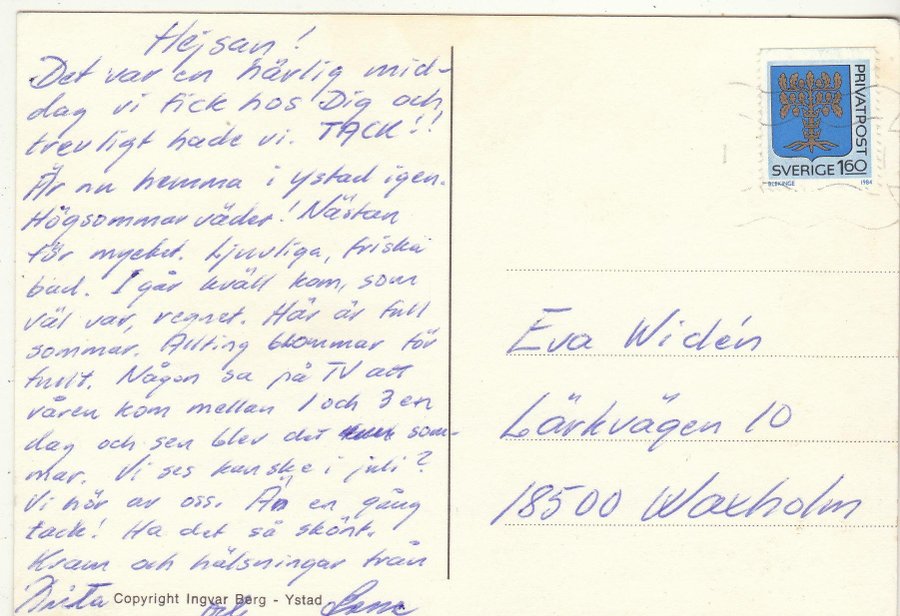 Hejsan!
Det var en härlig mid-
dag vi fick hos Dig och
trevligt hade vi. TACK!!
Är nu hemma i Ystad igen.
Högsommarväder! Nästan
för mycket. Ljuvliga, friska
bad. I går kväll kom, som
väl var, regnet. Här är full
sommar. Allting blommar för
fullt. Någon sa på TV att
våren kom mellan 1 och 3 en
dag och sen blev det som-
mar. Vi ses kanske i juli?
Vi hör av oss. Än en gång
tack! Ha det så skönt.
Kram och hälsningar från
Copyright Ingvar Berg - Ystad
PRIVATPOST
SVERIGE 160
BLEKINGE 1984
Eva Widén
Lärkvägen 10
18500 Waxholm